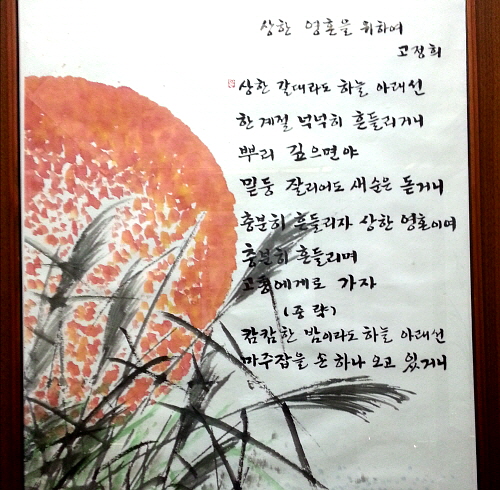 상한 영혼을 위하여
고정희
상한 갈대라도 하늘 아래선
한 계절 넉넉히 흔들리거니
뿌리 깊으면야
밑둥 잘리어도 새순은 돋거니
충분히 흔들리자 상한 영혼이여
충분히 흔들리며
고통에게로 가자
(중략)
캄캄한 밤이라도 하늘 아래선
마주잡을 손 하나 오고 있거니